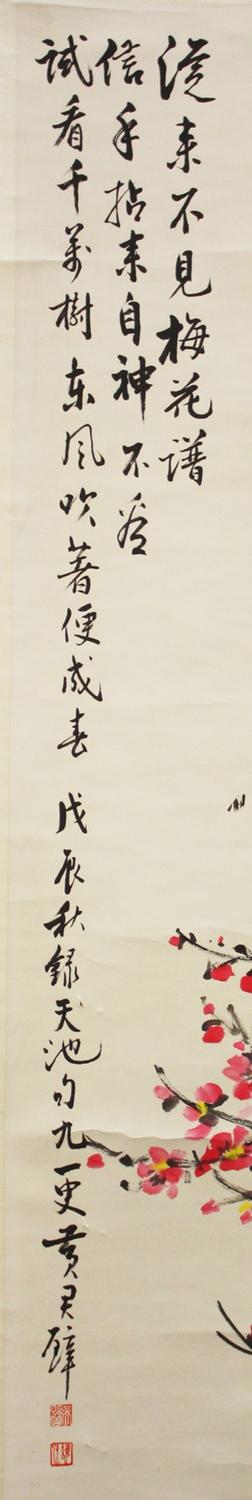 從来不見梅花譜
信手拈来自神不
試看千萬樹東風吹著便成春 戊辰秋録天池句九一叟黄君璧